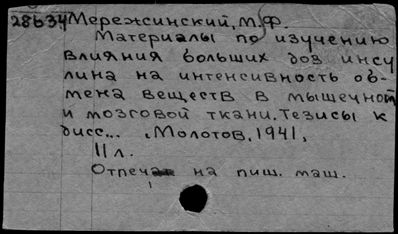 28634 Мережсинский, М.Ф.
Материалы по изучению
влияния больших доз инсу
лина на интенсивность об-
мена веществ в мышечной
и мозговой ткани. Тезисы к
дисс... Молотов, 1941,
11 л.
Отпечат на пиш. маш.